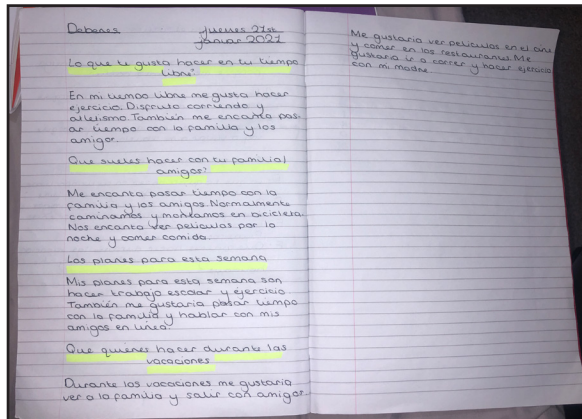 Deberes. jueves 21st
januar 2021
Lo que te gusta hacer en tu tiempo
libre?
En mi tiempo libre me gusta hacer
ejercicio. Disfruto corriendo y
atletismo. También me encanta pas-
ar tiempo con la familia y los
amigos.
Que sueles hacer con tu familia/
amigos?
Me encanta pasar tiempo con la
familia y los amigos. Normalmente
caminamos y montamos en bicicleta.
Nos encanta ver peliculas por la
noche y comer comida.
Los planes para esta semana
Mis planes para esta semana son
hacer trabajo escolar y ejercicio.
También me gustaria pasar tiempo
con la familia y hablar con mis
amigos en linea.
Que quieres hacer durante las
vacaciones
Durante las vacaciones me gustaria
ver a la familia y salir con amigos.
Me gustaria ver peliculas en el cine
y comer en los restaurantes. Me
gustaria ir a correr y hacer ejercicio
con mi madre.